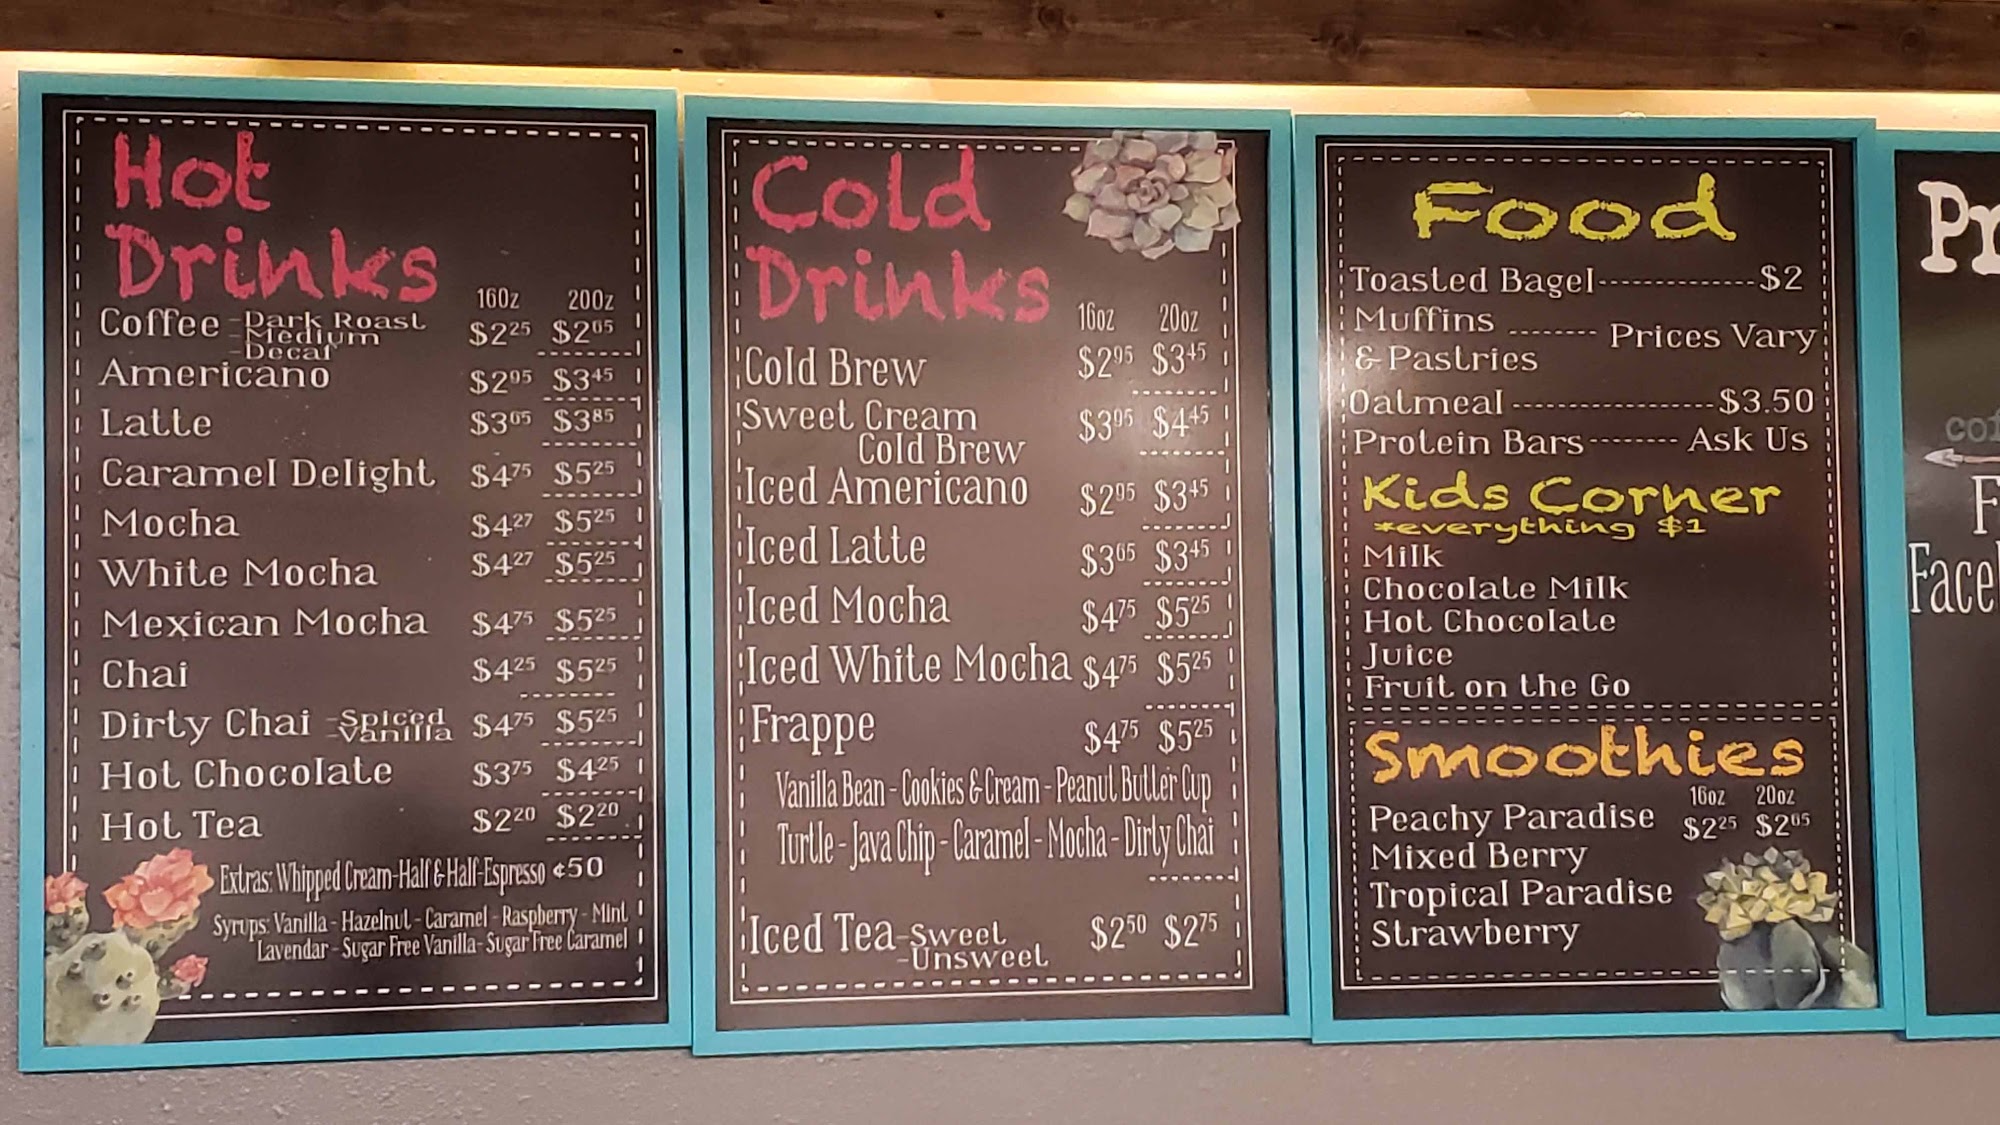 Hot
Drinks
16oz 20oz
Coffee -Dark Roast $2.25 $2.65
-Medium
-Decaf
Americano $2.95 $3.45
Latte $3.65 $3.85
Caramel Delight $4.75 $5.25
Mocha $4.27 $5.25
White Mocha $4.27 $5.25
Mexican Mocha $4.75 $5.25
Chai $4.25 $5.25
Dirty Chai -Spiced $4.75 $5.25
-Vanilla
Hot Chocolate $3.75 $4.25
Hot Tea $2.20 $2.20
Extras: Whipped Cream-Half & Half-Espresso ¢50
Syrups: Vanilla - Hazelnut - Caramel - Raspberry - Mint
Lavendar - Sugar Free Vanilla - Sugar Free Caramel
Cold
Drinks
16oz 20oz
Cold Brew $2.95 $3.45
Sweet Cream $3.95 $4.45
Cold Brew
Iced Americano $2.95 $3.45
Iced Latte $3.65 $3.45
Iced Mocha $4.75 $5.25
Iced White Mocha $4.75 $5.25
Frappe $4.75 $5.25
Vanilla Bean - Cookies & Cream - Peanut Butter Cup
Turtle - Java Chip - Caramel - Mocha - Dirty Chai
Iced Tea -Sweet $2.50 $2.75
-Unsweet
Food
Toasted Bagel $2
Muffins Prices Vary
& Pastries
Oatmeal $3.50
Protein Bars Ask Us
Kids Corner
*everything $1
Milk
Chocolate Milk
Hot Chocolate
Juice
Fruit on the Go
Smoothies
16oz 20oz
Peachy Paradise $2.25 $2.65
Mixed Berry
Tropical Paradise
Strawberry